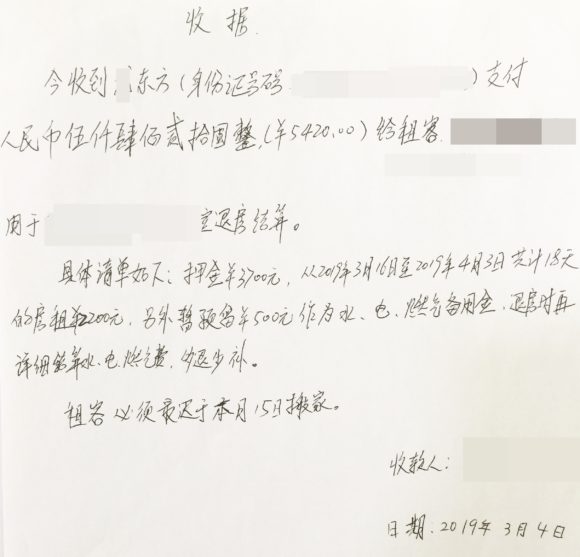 收据.
今收到 东方(身份证号码 )支付
人民币伍仟肆佰贰拾圆整,(¥5420.00)给租客
用于 室退房结算。
具体清单如下:押金¥3700元,从2019年3月16日至2019年4月3日共计18天
的房租¥2200元,另外暂预留¥500元作为水、电、燃气备用金,退房时再
详细结算水、电、燃气费,多退少补。
租客必须最迟于本月15日搬家。
收款人:
日期:2019年3月4日